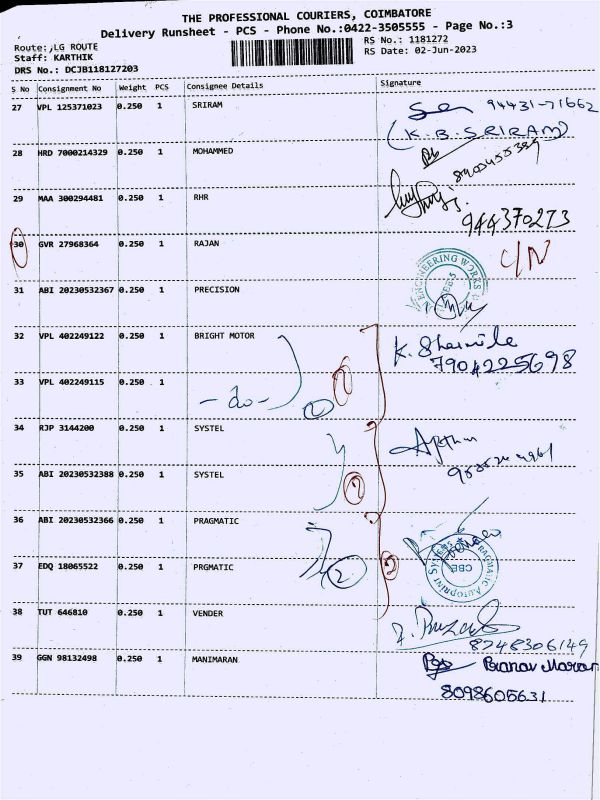 THE PROFESSIONAL COURIERS, COIMBATORE
Delivery Runsheet - PCS - Phone No.:0422-3505555 - Page No.:3
Route:,LG ROUTE
RS No.: 1181272
Staff: KARTHIK
RS Date: 02-Jun-2023
DRS No.: DCJB118127203
S No Consignment No Weight PCS Consignee Details Signature
27 VPL 125371023 0.250 1 SRIRAM 94431-71662
(K.B.SRIRAM)
28 HRD 7000214329 0.250 1 MOHAMMED
29 MAA 300294481 0.250 1 RHR
944370273
30 GVR 27968364 0.250 1 RAJAN C/N
31 ABI 20230532367 0.250 1 PRECISION
ENGINEERING WORKS
32 VPL 402249122 0.250 1 BRIGHT MOTOR
7904225698
33 VPL 402249115 0.250 1
- do - 2 2
34 RJP 3144200 0.250 1 SYSTEL
35 ABI 20230532388 0.250 1 SYSTEL
2
36 ABI 20230532366 0.250 1 PRAGMATIC
37 EDQ 18065522 0.250 1 PRGMATIC 2 2
Pragmatic Autoprint Systems
CBE
38 TUT 646810 0.250 1 VENDER
8248306149
39 GGN 98132498 0.250 1 MANIMARAN Pranav Maran
8098605631